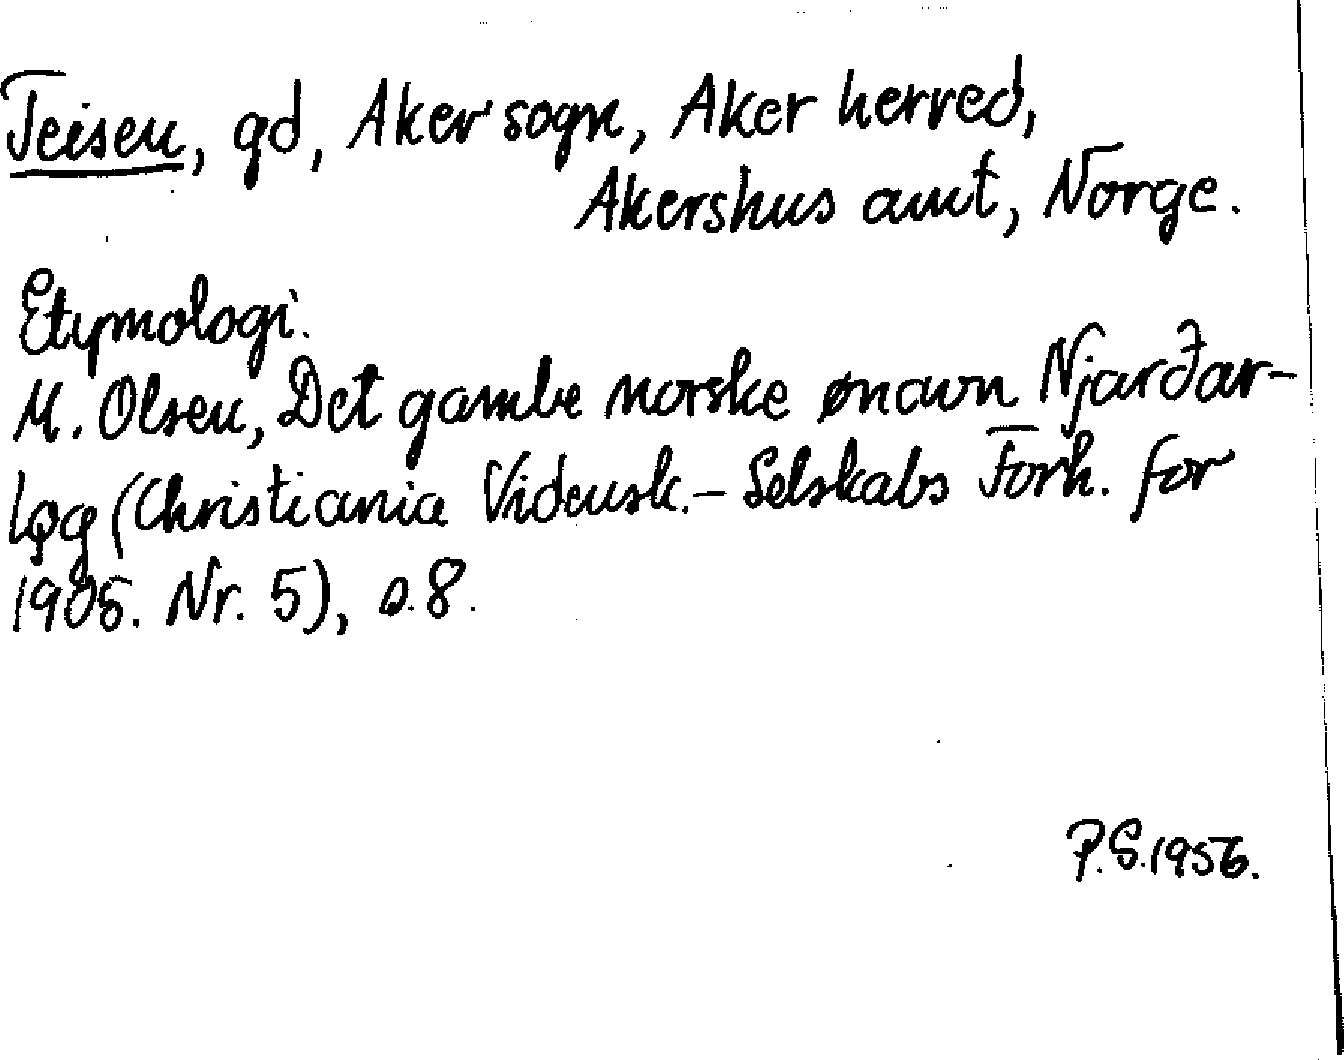 Teisen, gd, Aker sogn, Aker herred,
Akershus amt, Norge.
Etymologi.
M. Olsen, Det gamle norske ønavn Njarðar-
lǫg (Christiania Vidensk.-Selskabs Forh. for
1905. Nr. 5), s. 8.
P.S. 1956.